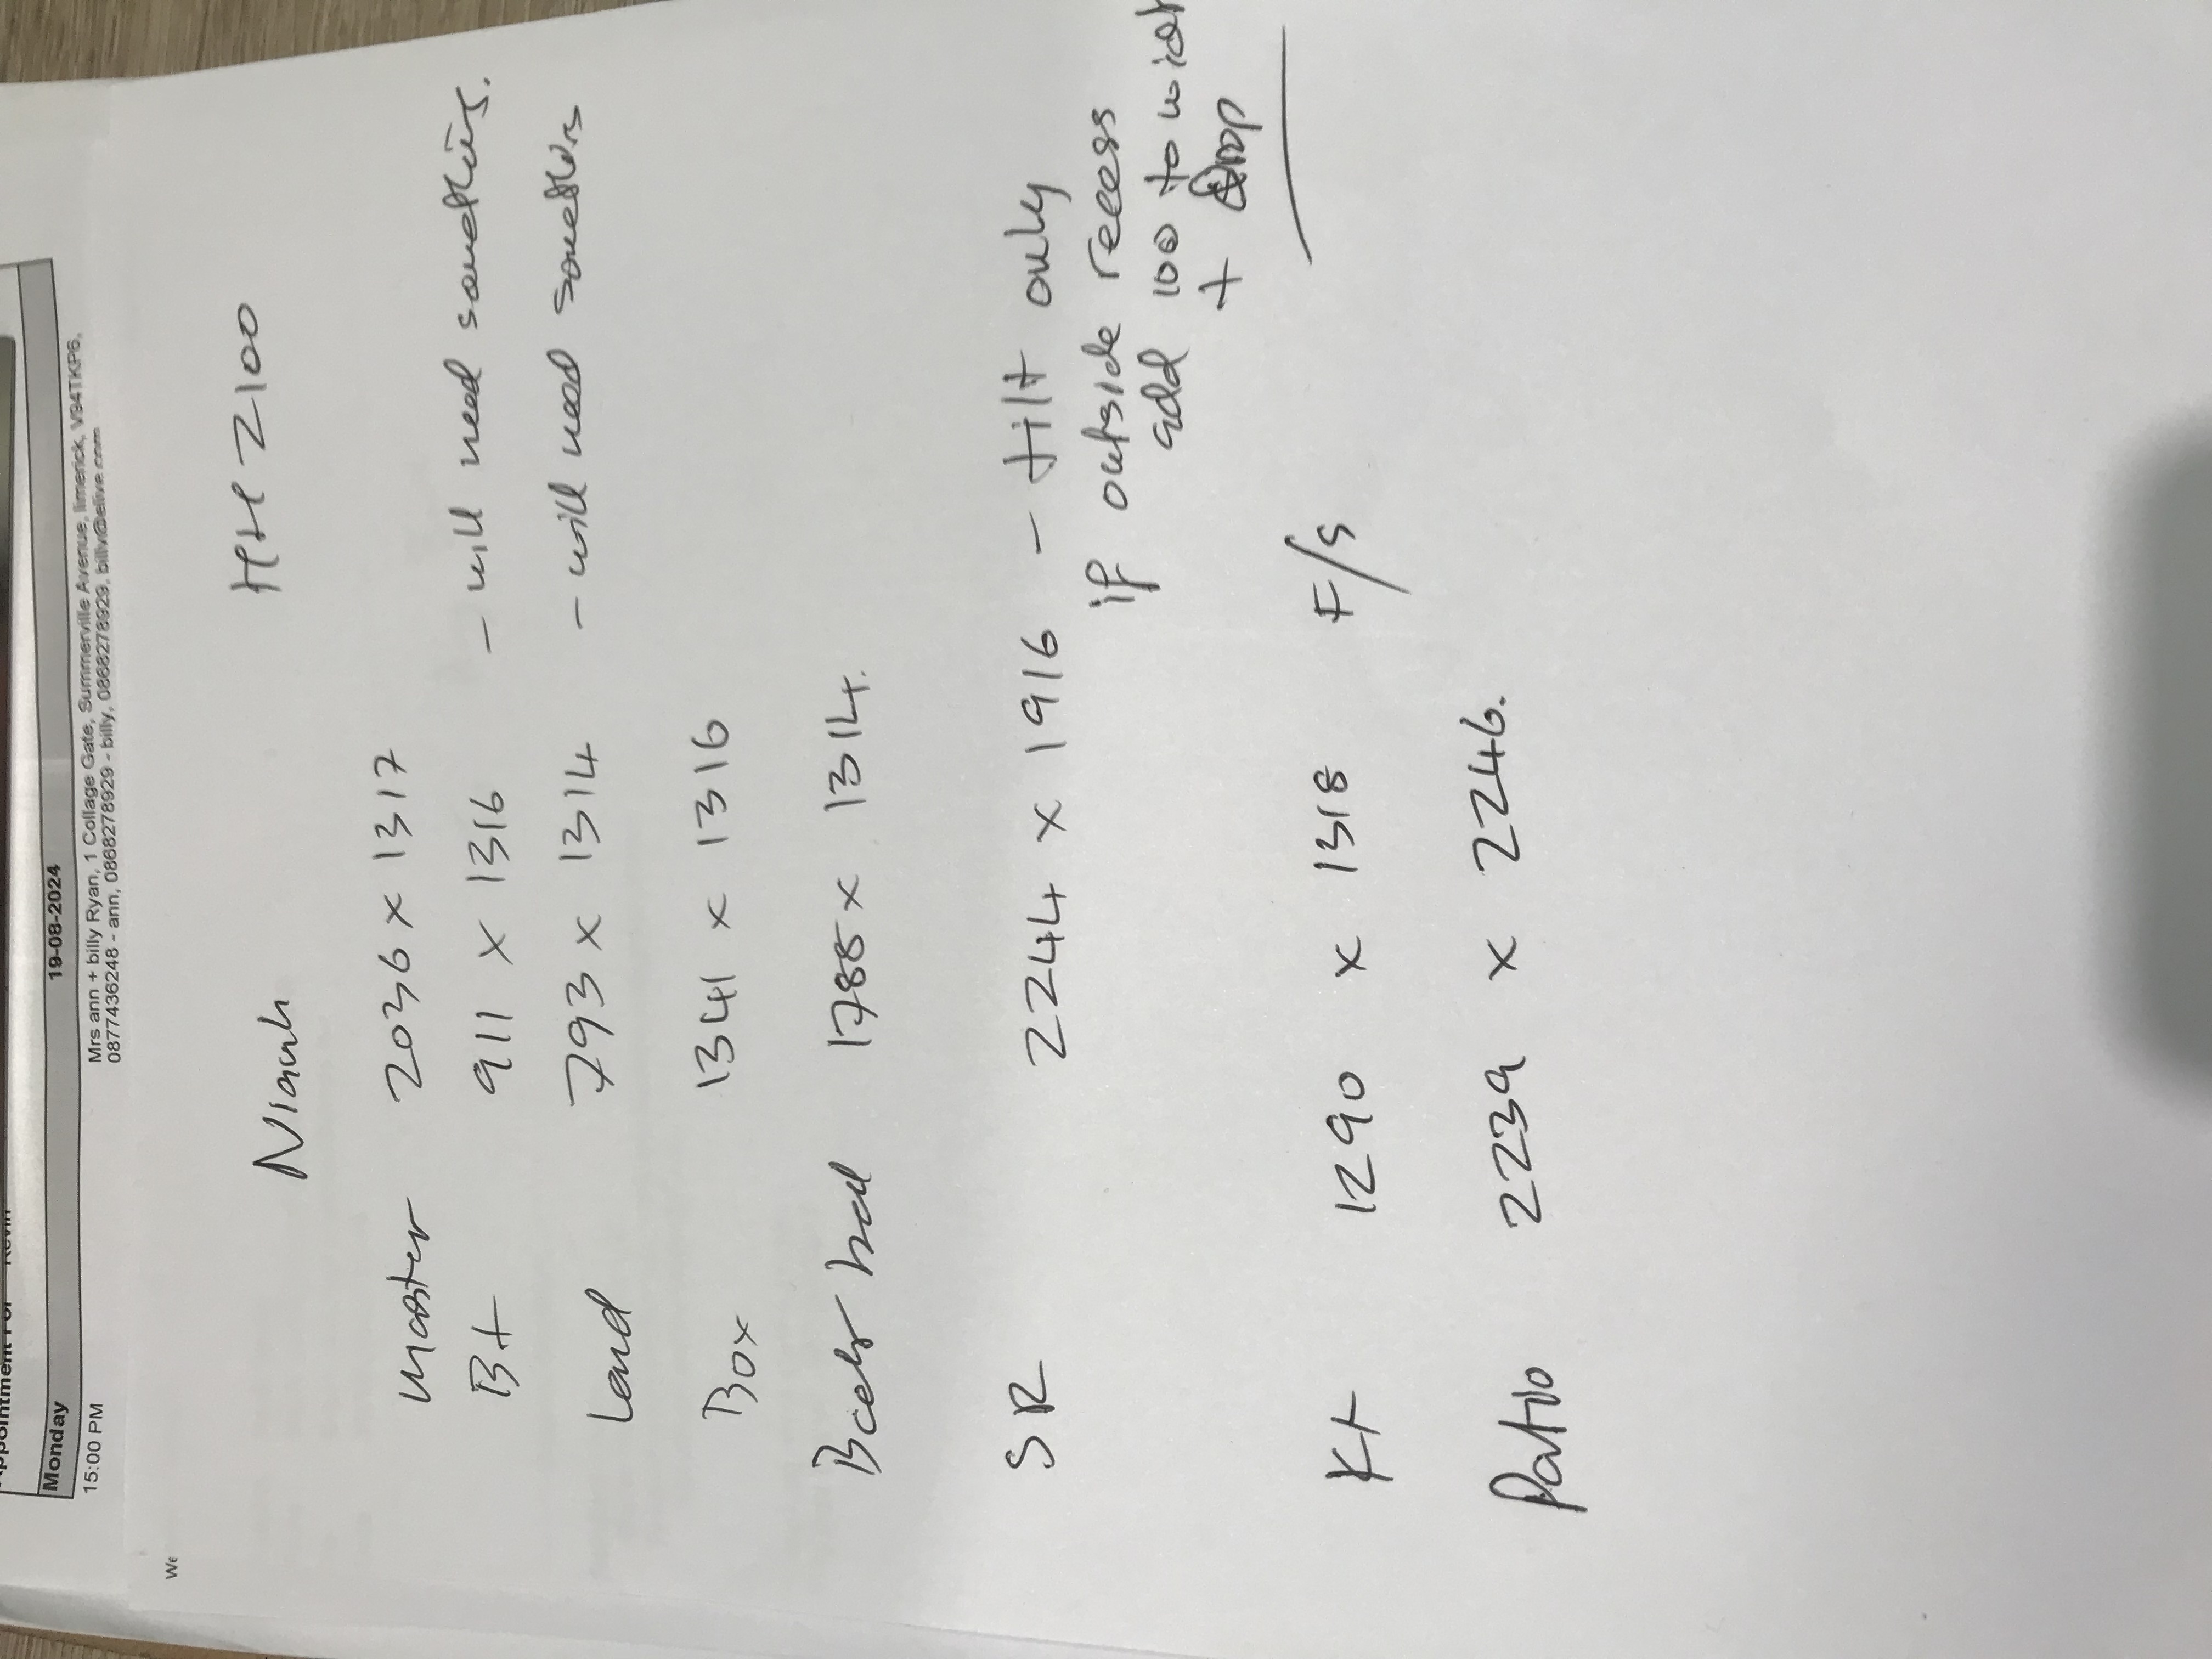 Monday 19-08-2024
15:00 PM Mrs ann + billy Ryan, 1 Collage Gate, Summerville Avenue, limerick, V94TKP6,
0877436248 - ann, 0868278929 - billy, 0868278929, billv@elive.com
We
Niamh HH 2100
Master 2036 x 1317
Bt 911 x 1316 - will need something.
Land 793 x 1314 - will need something
Box 1341 x 1316
Back bed 1788 x 1314.
SR 2244 x 1916 - tilt only
if outside recess
add 100 to width
+ Drop
Kt 1290 x 1318 F/S
Patio 2239 x 2246.